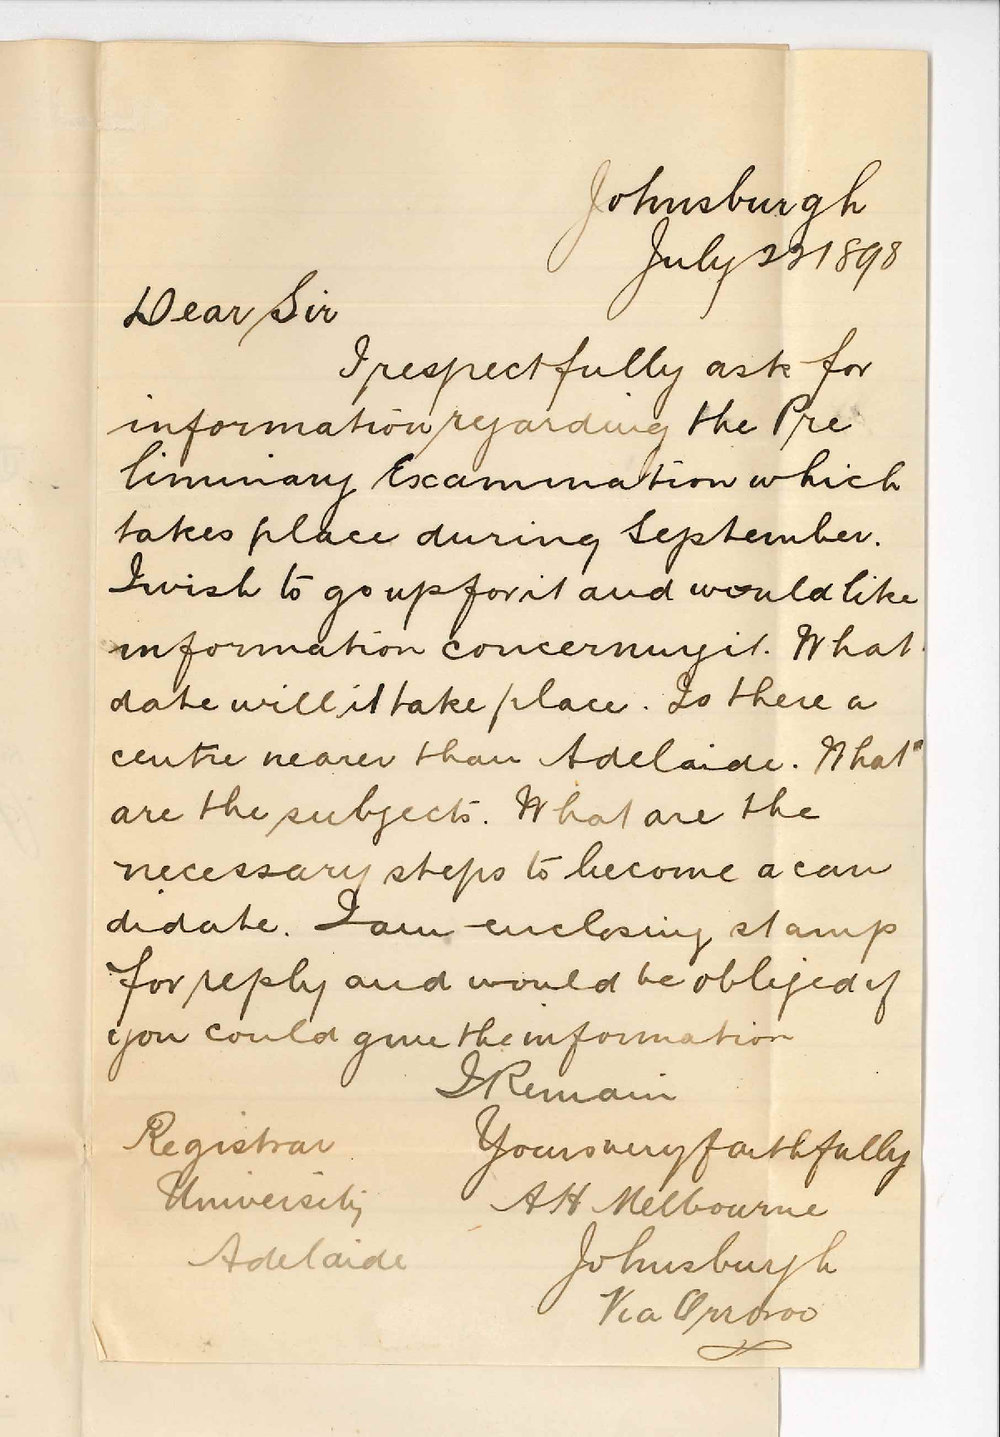 Johnsburgh
July 22 1898
Dear Sir
I respectfully ask for
information regarding the Pre
liminary Examination which
takes place during September.
I wish to go up for it and would like
information concerning it. What
date will it take place. Is there a
centre nearer than Adelaide. What
are the subjects. What are the
necessary steps to become a can
didate. I am enclosing stamp
for reply and would be obliged if
you could give the information
I Remain
Yours very faithfully
A H Melbourne
Johnsburgh
Via Orroroo
Registrar
University
Adelaide